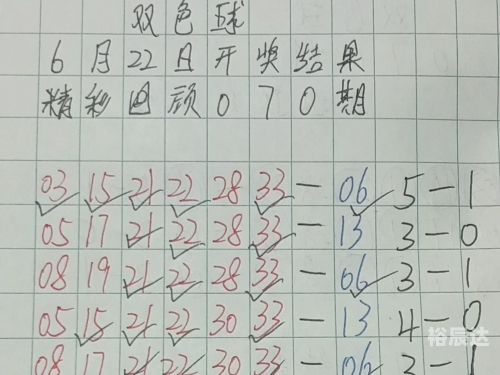 双色球
6月22日开奖结果
精彩回顾070期
03 15 21 22 28 33 — 06 5 — 1
05 17 21 22 28 33 — 13 3 — 0
08 19 21 22 28 33 — 06 3 — 1
05 15 21 22 30 33 — 13 4 — 0
08 17 21 22 30 33 — 06 3 — 1
裕辰达